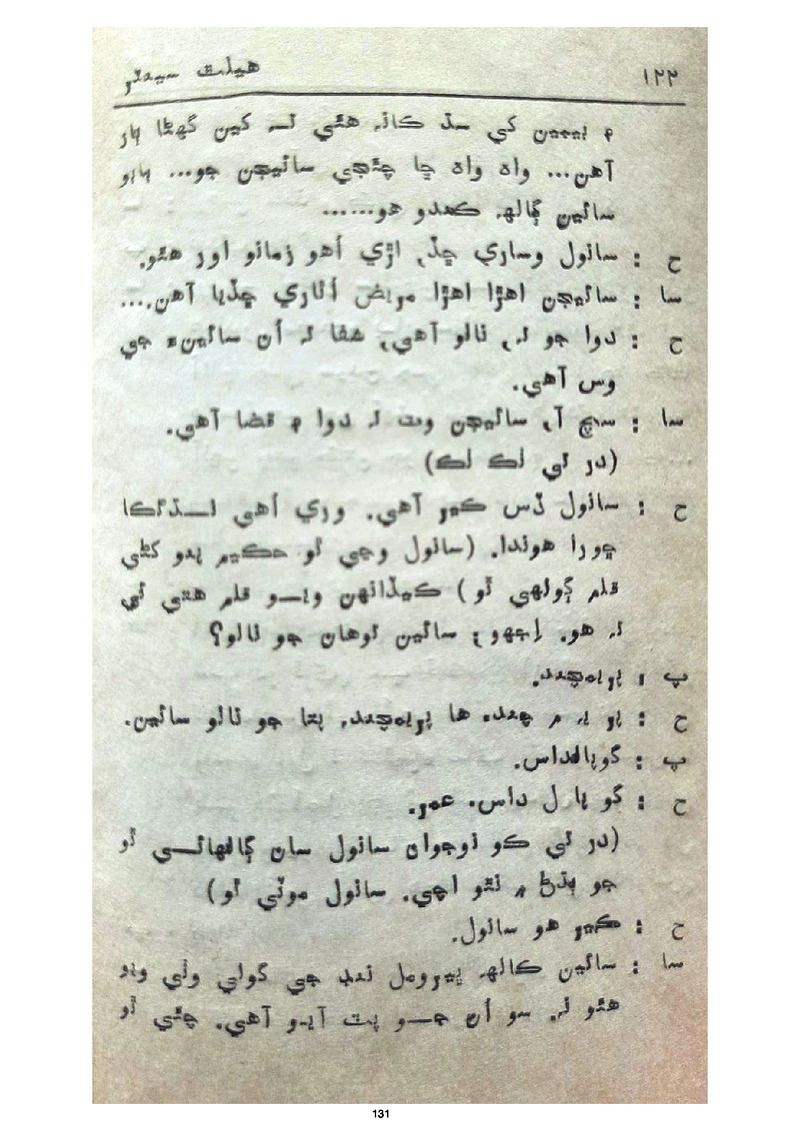 ۱۲۲ هيلٿ سينٽر
۾ ٻيين کي سڏ ڪانه هئي ته ڪين گهڻا ٻار
آهن... واه واه ڇا چئجي سائيجن جو... ٻايو
سائين ڳالهه ڪندو هو......
ح : سانول وساري ڇڏ، اڙي اُهو زمانو اور هئو.
سا : سائيجن اهڙا اهڙا مريض اُٿاري ڇڏيا آهن....
ح : دوا جو ته، نالو آهي، شفا ته اُن سائينءَ جي
وس آهي.
سا : سچ آ، سائيجن وٽ ته دوا ۾ قضا آهي.
(در تي ٺڪ ٺڪ)
ح : سانول ڏس ڪير آهي. وري اُهي
ڇورا هوندا. (سانول وڃي ٿو حڪيم پنو کڻي
قلم ڳولهي ٿو) ڪيڏانهن ويـو قلم هتي ئي
ته هو. اِجهو؛ سائين توهان جو نالو؟
پ : پريمچند.
ح : پر يـ م چند. ها پريمچند، پتا جو نالو سائين.
پ : گوپالداس.
ح : گو پا ل داس. عمر.
(در تي ڪو نوجوان سانول سان ڳالهائـي ٿو
جو ٻڌڻ ۾ نٿو اچي. سانول موٽي ٿو)
ح : ڪير هو سانول.
سا : سائين ڪالهه ڀيرومل ننڊ جي گولي وٺي ويو
هئو نه. سو اُن جـو پٽ آيو آهي. چئي ٿو
131